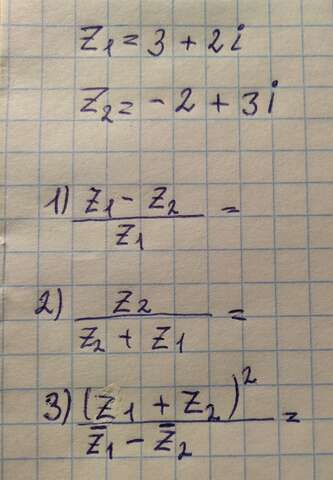 z₁ = 3 + 2i
z₂ = - 2 + 3i
1) (z₁ - z₂) / z₁ =
2) z₂ / (z₂ + z₁) =
3) (z₁ + z₂)² / (z̅₁ - z̅₂) =